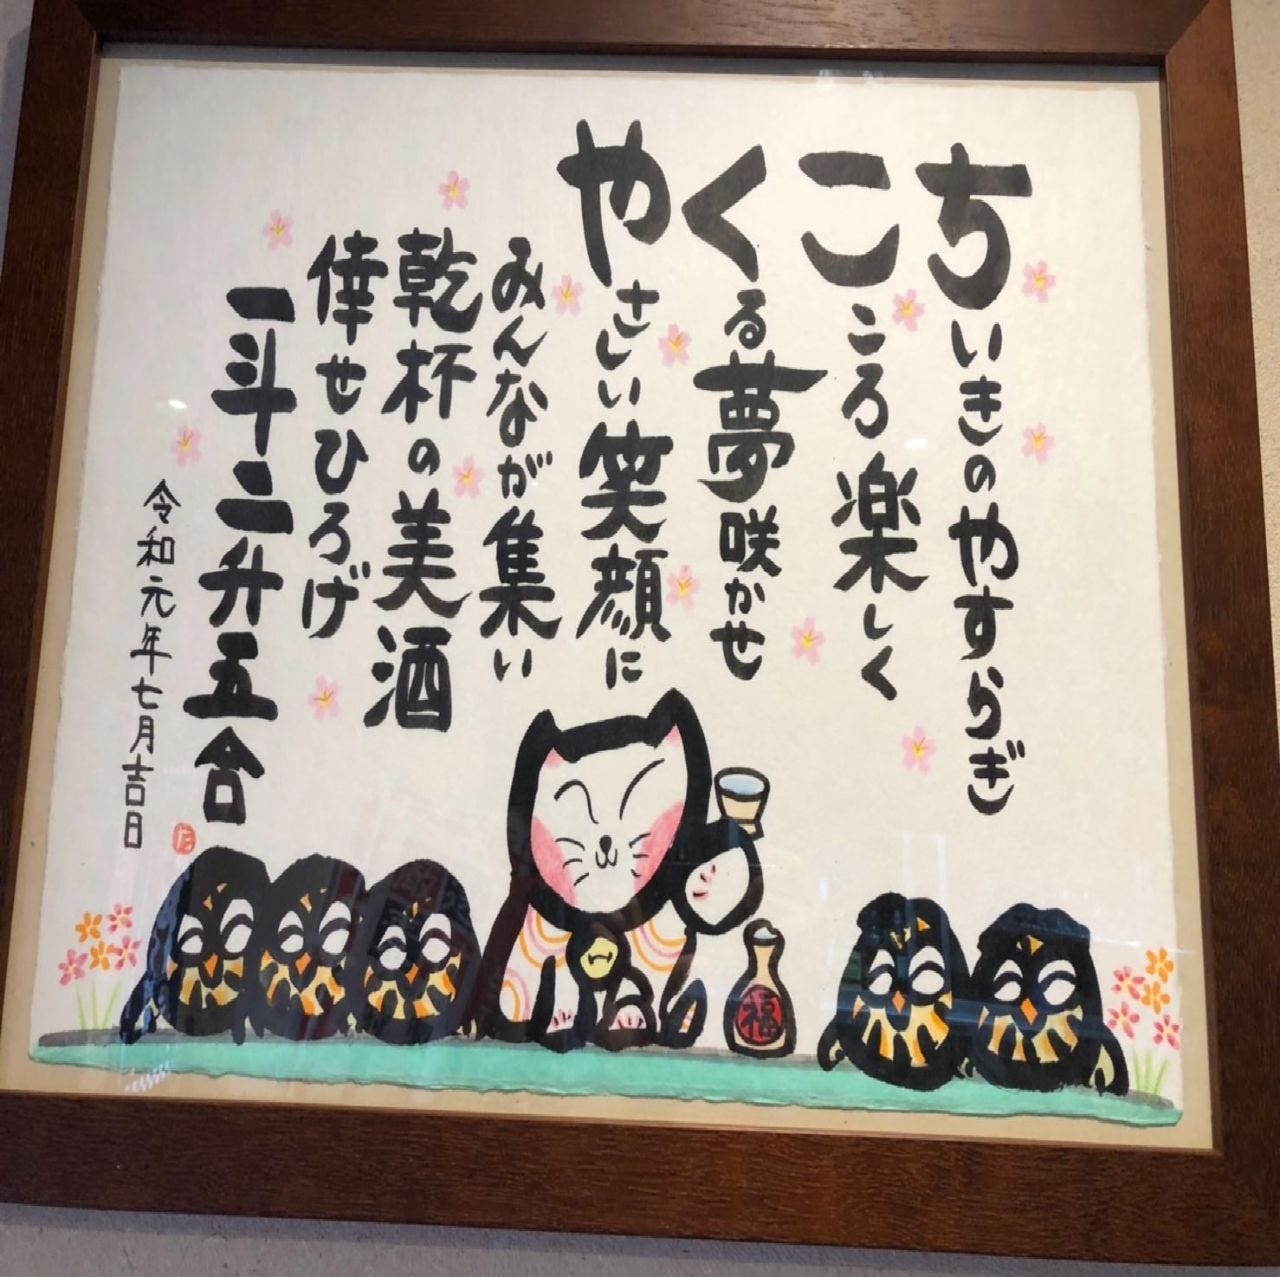 ちいきのやすらぎ
こころ楽しく
くる夢咲かせ
やさしい笑顔に
みんなが集い
乾杯の美酒
倖せひろげ
一斗二升五合
令和元年七月吉日
た
福